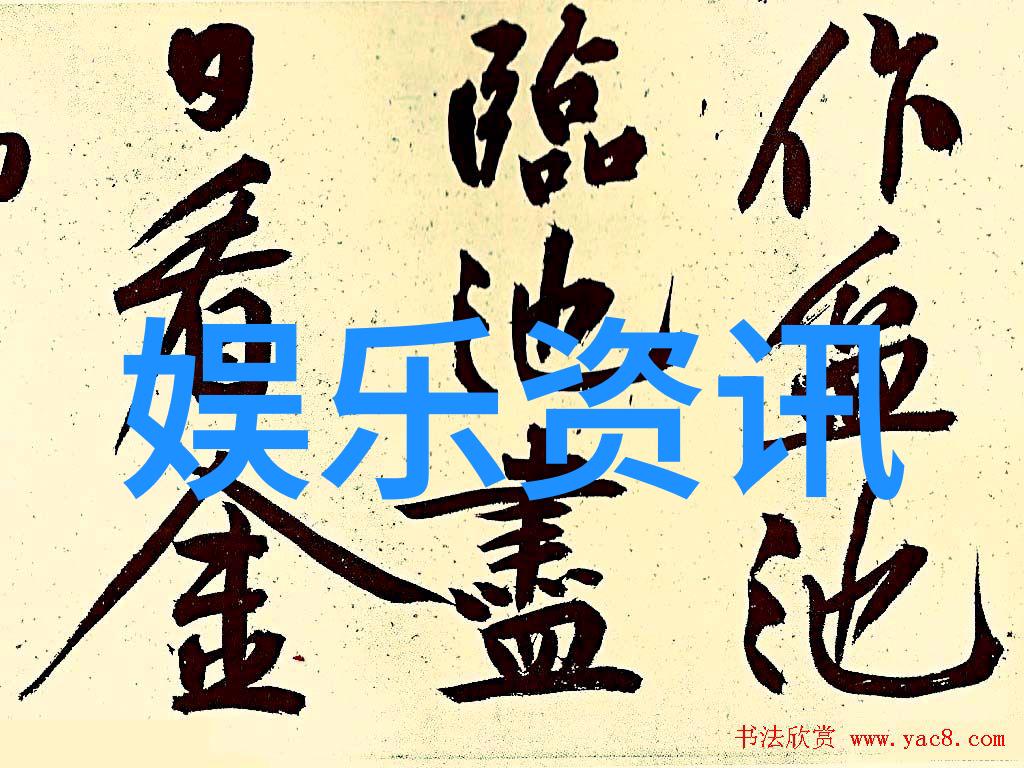 作盆池
臨池盡
日看金
娱乐资讯
书法欣赏 www.yac8.com